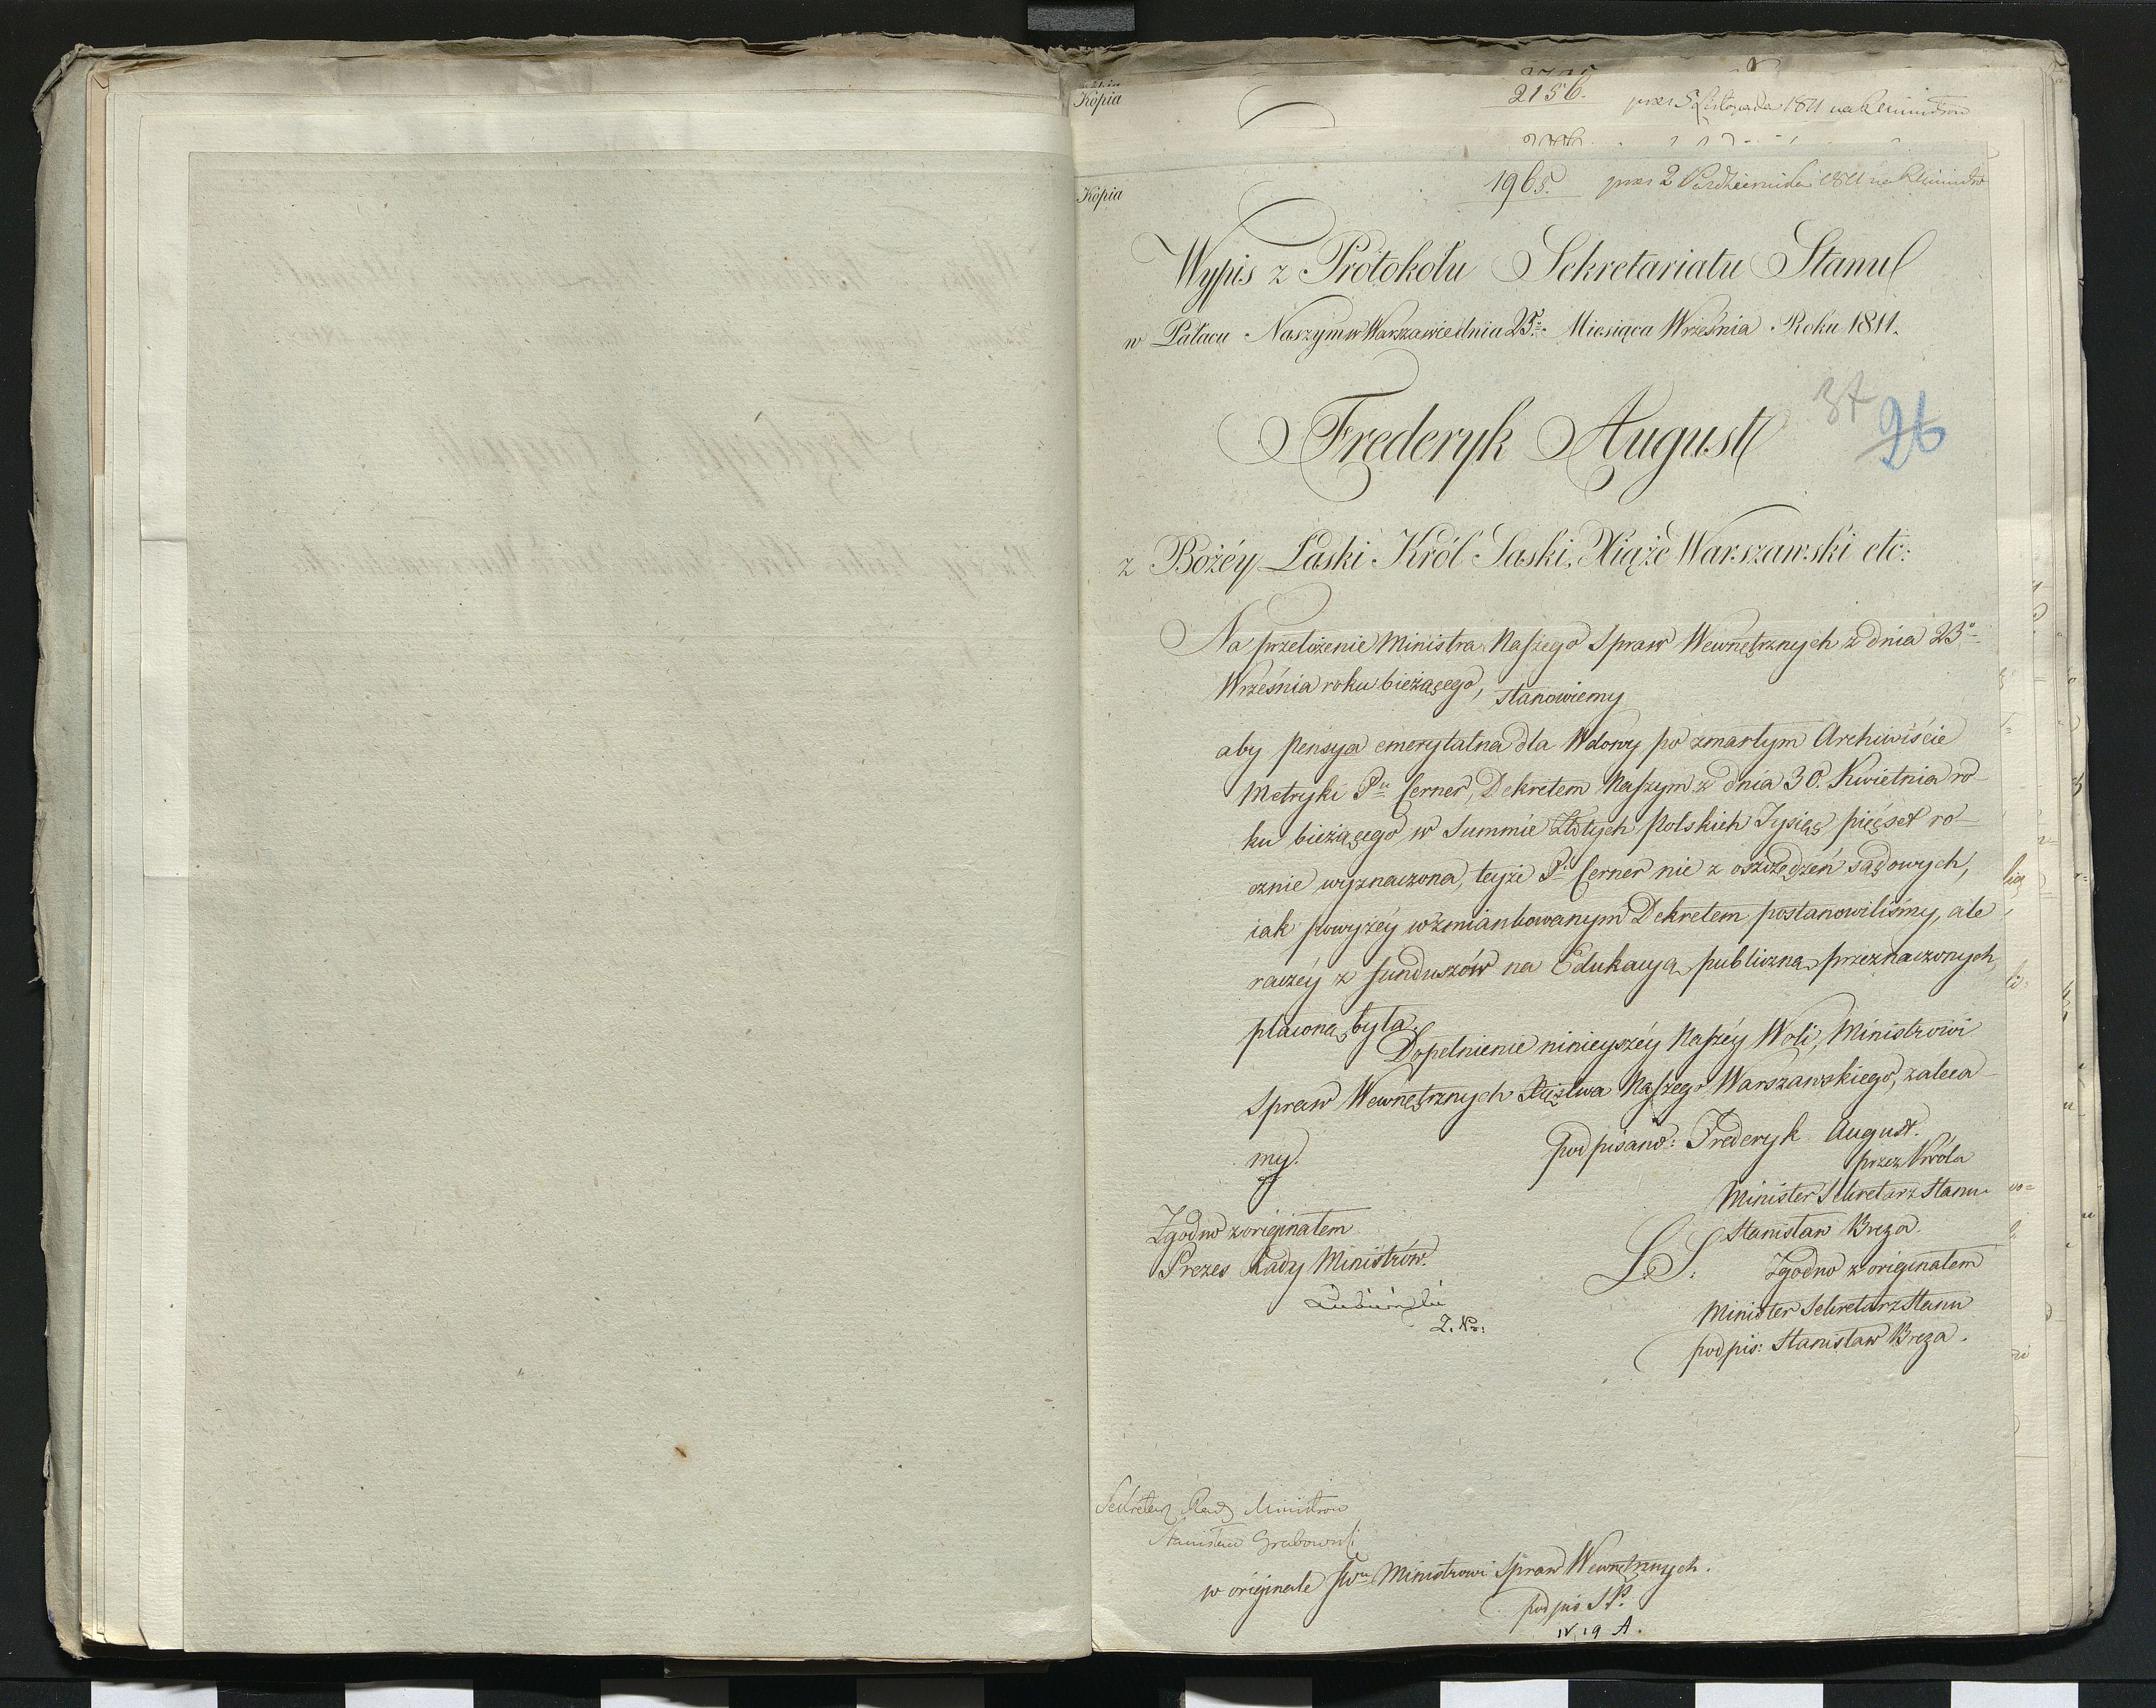 Kopia
2156. prez 5 Listopada 1811 na R. Ministrów
Kopia
1965. prez 2 Pazdziernika 1811 na R. Ministrów
Wypis z Protokołu Sekretariatu Stanu
w Pałacu Naszym w Warszawie dnia 25. Miesiąca Września Roku 1811.
37 96
Frederyk August
z Bożéy Łaski Król Saski, Xiąże Warszawski etc:
Na przełożenie Ministra Naszego Spraw Wewnętrznych z dnia 23o
Września roku bieżącego, stanowiemy
aby pensya emerytalna dla Wdowy po zmarłym Archiwiście
Metryki Pu Cerner, Dekretem Naszym z dnia 30. Kwietnia ro-
ku bieżącego w Summie Złotych Polskich Tysiąc pięćset ro-
cznie wyznaczona, teyże P. Cerner nie z oszczędzeń sądowych,
iak powyżéy wzmiankowanym Dekretem postanowiliśmy, ale
raczéy z funduszów na Edukacyą publiczną przeznaczonych,
płaconą była.
Dopełnienie ninieyszéy Naszéy Woli, Ministrowi
Spraw Wewnętrznych Xięstwa Naszego Warszawskiego, zaleca-
my.
podpisano: Frederyk August.
przez Króla
Minister Sekretarz Stanu
Stanisław Breza.
L. S.
Zgodno z originałem
Prezes Rady Ministrów.
Zgodno z originałem
Minister Sekretarz Stanu
podpis: Stanisław Breza.
Lubieński
Z. N:
Sekretarz Rady Ministrow
Stanisław Grabowski
w originale Jwu Ministrowi Spraw Wewnętrznych.
podpis S. P.
IV. 19 A.